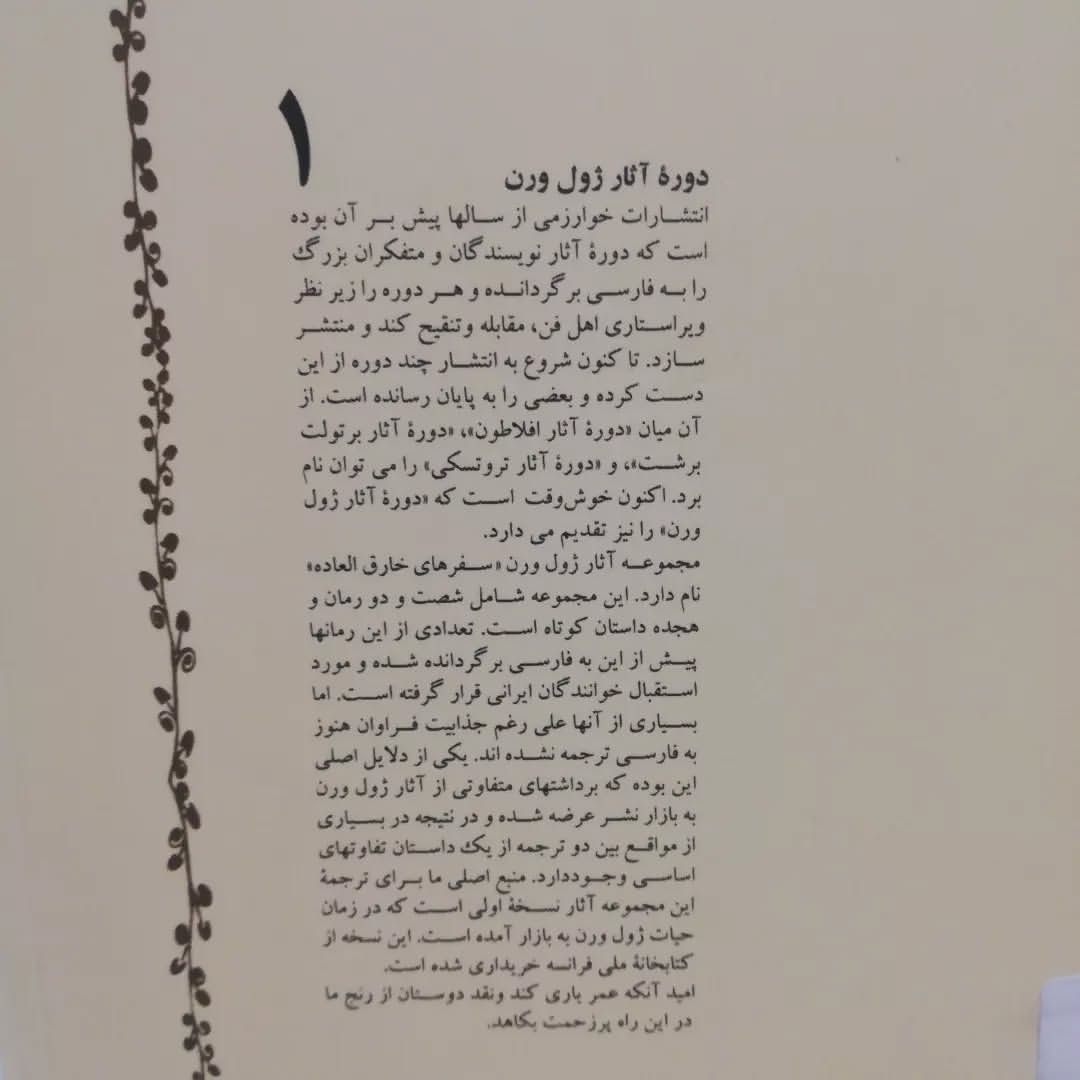 ۱
دورهٔ آثار ژول ورن
انتشـارات خوارزمی از سـالها پیش بـر آن بوده
است که دورهٔ آثار نویسندگان و متفکران بزرگ
را بـه فارسـی برگردانـده و هـر دوره را زیر نظر
ویراسـتاری اهل فن، مقابله وتنقیح کند و منتشـر
سـازد. تا کنون شروع به انتشـار چند دوره از این
دسـت کرده و بعضی را به پایان رسانده است. از
آن میان «دورهٔ آثار افلاطون»، «دورهٔ آثار برتولت
برشـت»، و «دورهٔ آثار تروتسکی» را می توان نام
برد. اکنون خوش‌وقت اسـت که «دورهٔ آثار ژول
ورن» را نیز تقدیم می دارد.
مجموعـه آثار ژول ورن «سـفرهای خارق العاده»
نام دارد. این مجموعه شـامل شصت و دو رمان و
هجده داستان کوتاه اسـت. تعدادی از این رمانها
پیـش از این به فارسـی برگردانده شـده و مورد
اسـتقبال خوانندگان ایرانی قرار گرفته اسـت. اما
بسـیاری از آنها علی رغم جذابیت فـراوان هنوز
به فارسـی ترجمه نشـده اند. یکی از دلایل اصلی
این بوده که برداشتهای متفاوتی از آثار ژول ورن
به بازار نشـر عرضه شـده و در نتیجه در بسـیاری
از مواقـع بین دو ترجمه از یک داسـتان تفاوتهای
اساسـی وجـوددارد. منبع اصلی ما بـرای ترجمهٔ
این مجموعه آثار نسـخهٔ اولی اسـت که در زمان
حیات ژول ورن به بازار آمده اسـت. این نسخه از
کتابخانهٔ ملی فرانسه خریداری شده است.
امید آنکه عمر یاری کند ونقد دوسـتان از رنج ما
در این راه پرزحمت بکاهد.